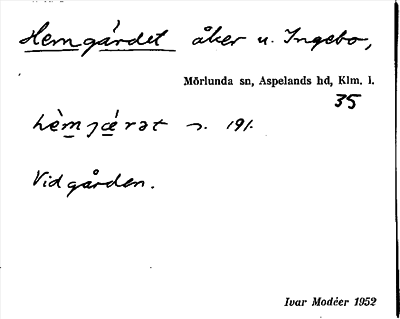 Hemgärdet åker u. Ingebo,
Mörlunda sn, Aspelands hd, Klm. l.
35
hèmjæ̀rət n. 191.
Vid gården.
Ivar Modéer 1952